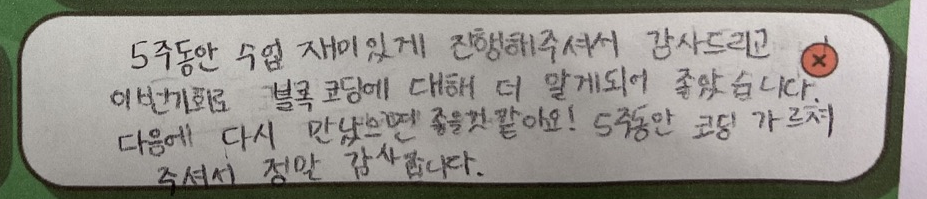 5주동안 수업 재미있게 진행해주셔서 감사드리고
이번기회로 블록코딩에 대해 더 알게되어 좋았습니다.
다음에 다시 만났으면 좋을것같아요! 5주동안 코딩 가르쳐
주셔서 정말 감사합니다.